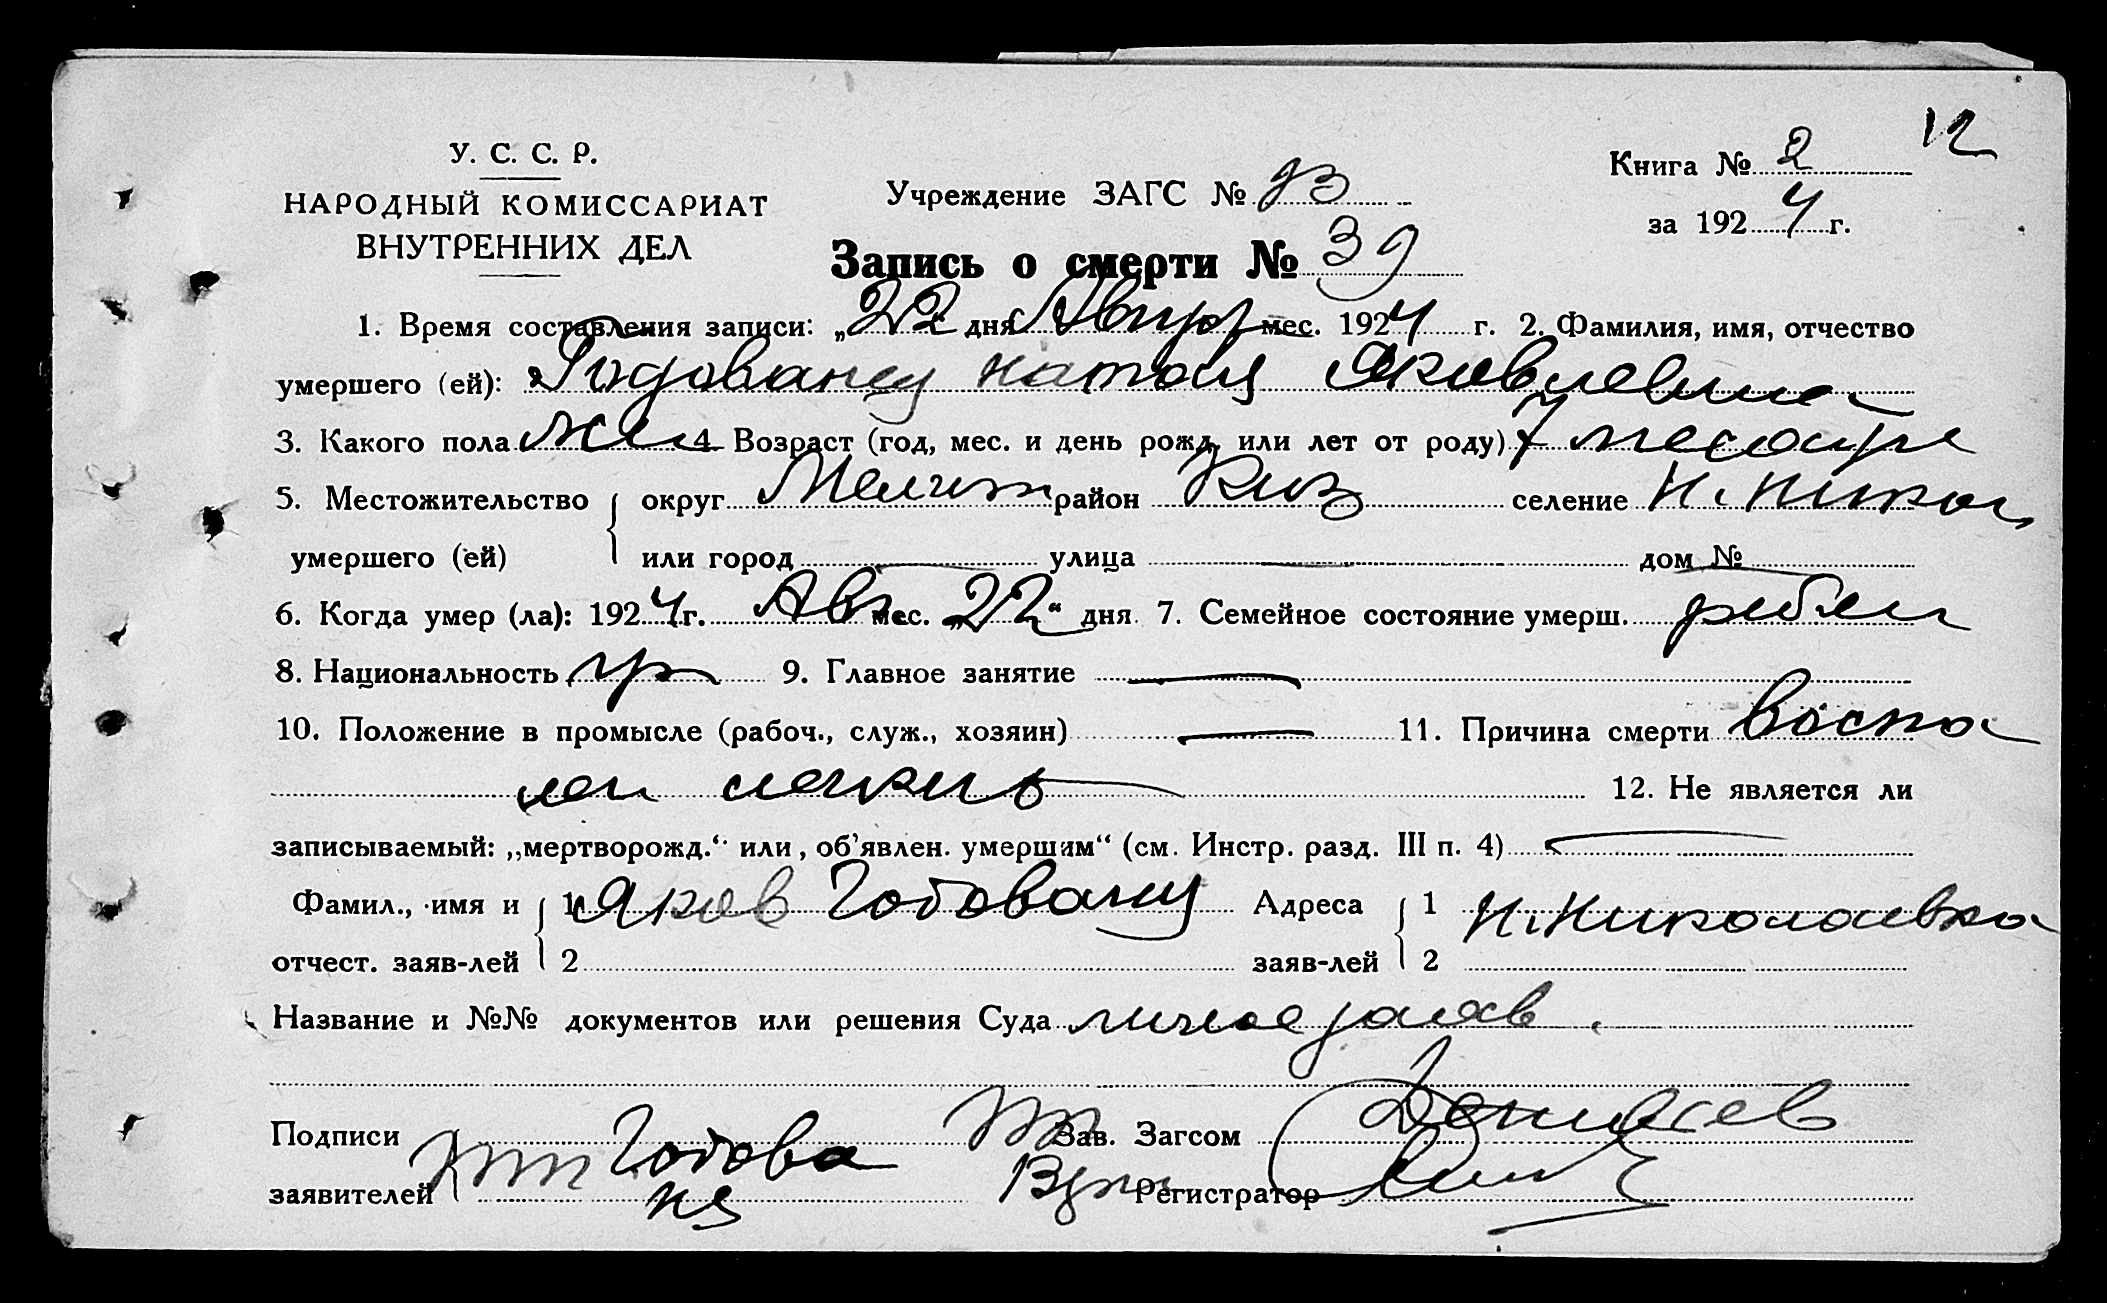 12
У. С. С. Р.
НАРОДНЫЙ КОМИССАРИАТ
ВНУТРЕННИХ ДЕЛ
Учреждение ЗАГС №
Книга № 2
за 1924 г.
Запись о смерти № 39
1. Время составления записи: „22" дня мес. 1924 г. 2. Фамилия, имя, отчество
умершего (ей): Яковлевна
3. Какого пола жен 4. Возраст (год, мес. и день рожд. или лет от роду) 7 месяце
5. Местожительство округ Мелит район селение Н. Никол
умершего (ей) или город улица дом №
6. Когда умер (ла): 1924 г. Авг мес. „22“ дня. 7. Семейное состояние умерш. ребен
8. Национальность 9. Главное занятие
10. Положение в промысле (рабоч., служ., хозяин) 11. Причина смерти воспа
лен легких 12. Не является ли
записываемый: „мертворожд.“ или, об'явлен. умершим“ (см. Инстр. разд. III п. 4)
Фамил., имя и 1 Яков Годованец Адреса 1 Н. Николаевка
отчест. заяв-лей 2 заяв-лей 2
Название и №№ документов или решения Суда личное
Подписи Зав. Загсом
заявителей Регистратор